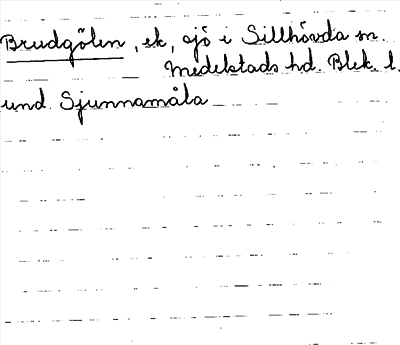 Brudgölen, ek, sjö i Sillhövda sn.
Medelstads hd. Blek. l.
und. Sjunnamåla